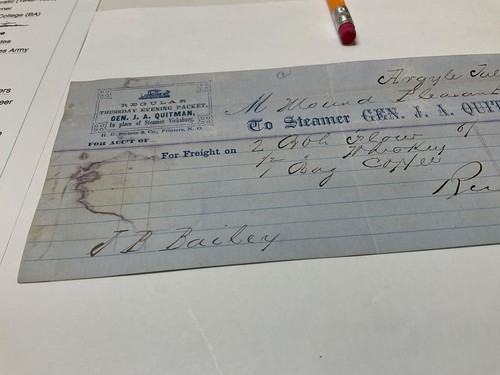 College (BA)
Army
REGULAR
THURSDAY EVENING PACKET,
GEN. J. A. QUITMAN,
In place of Steamer Vicksburg.
H. C. & Co., Printers, N. O.
FOR ACCT OF
Argyle Jul
M Mound Pleasant
To Steamer GEN. J. A. QUI
For Freight on 2 Bbls Flour
1/2 " Whiskey
1 Bag Coffee
J B Bailey